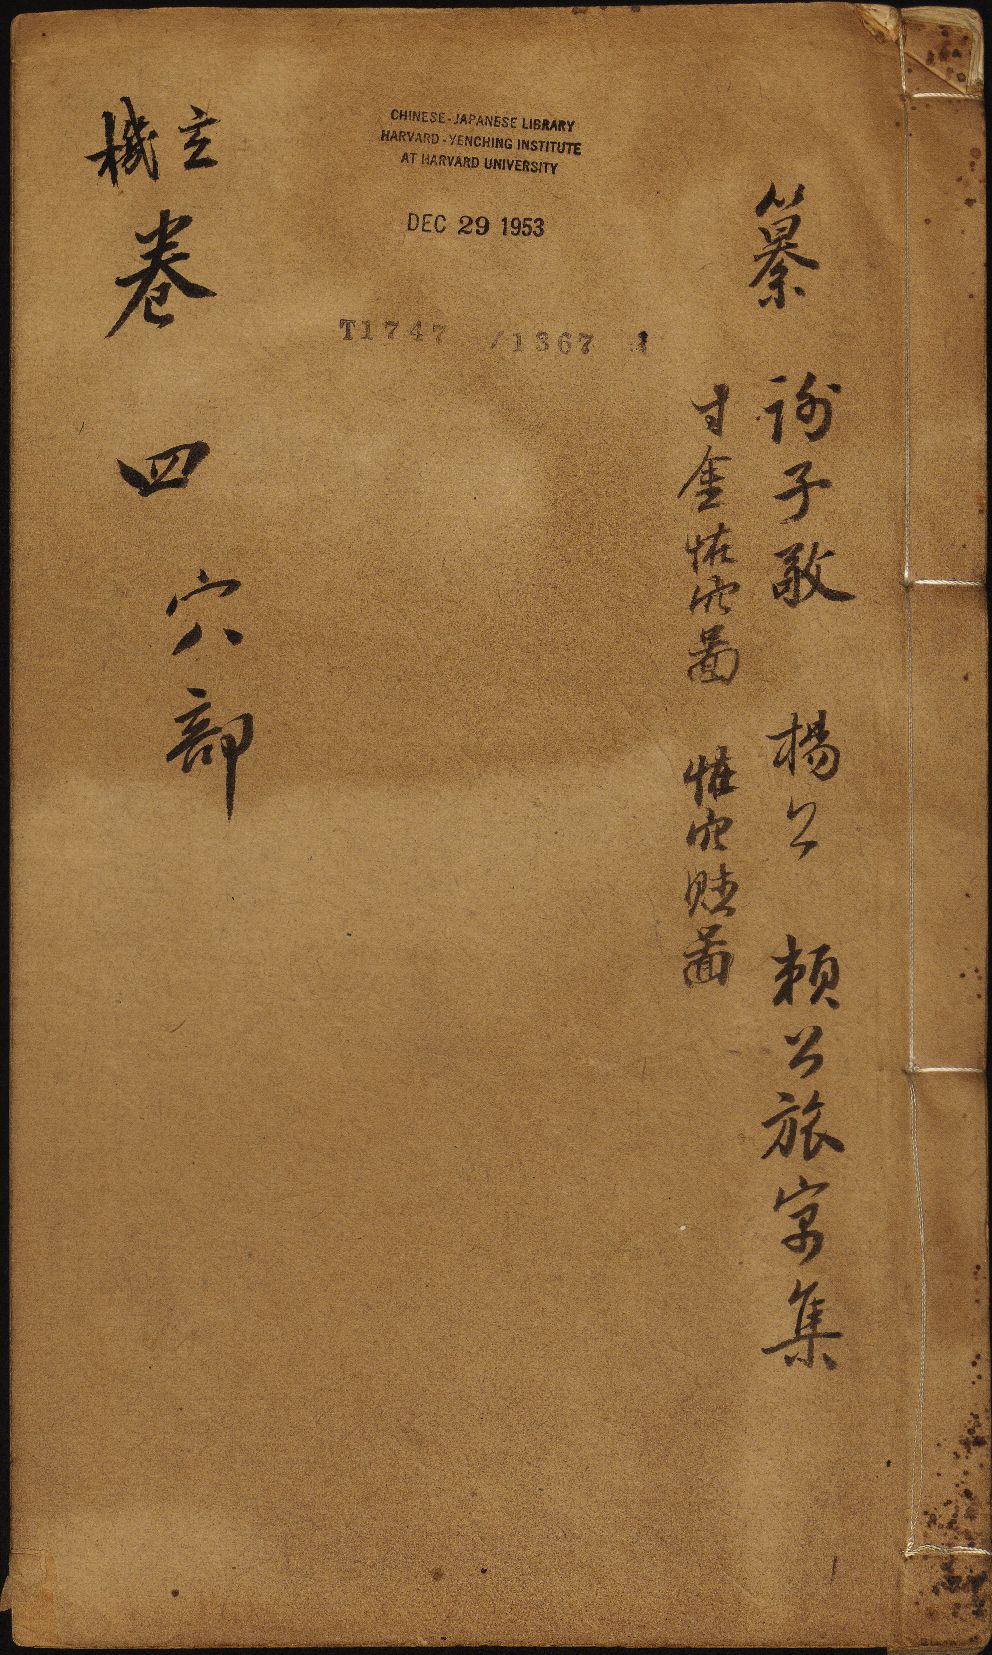 纂 謝子敬 楊公 賴公旅寓集
寸金怪穴圖 怪穴賍圖
CHINESE-JAPANESE LIBRARY
HARVARD-YENCHING INSTITUTE
AT HARVARD UNIVERSITY
DEC 29 1953
T1747 /1367
玄機
卷四 穴部